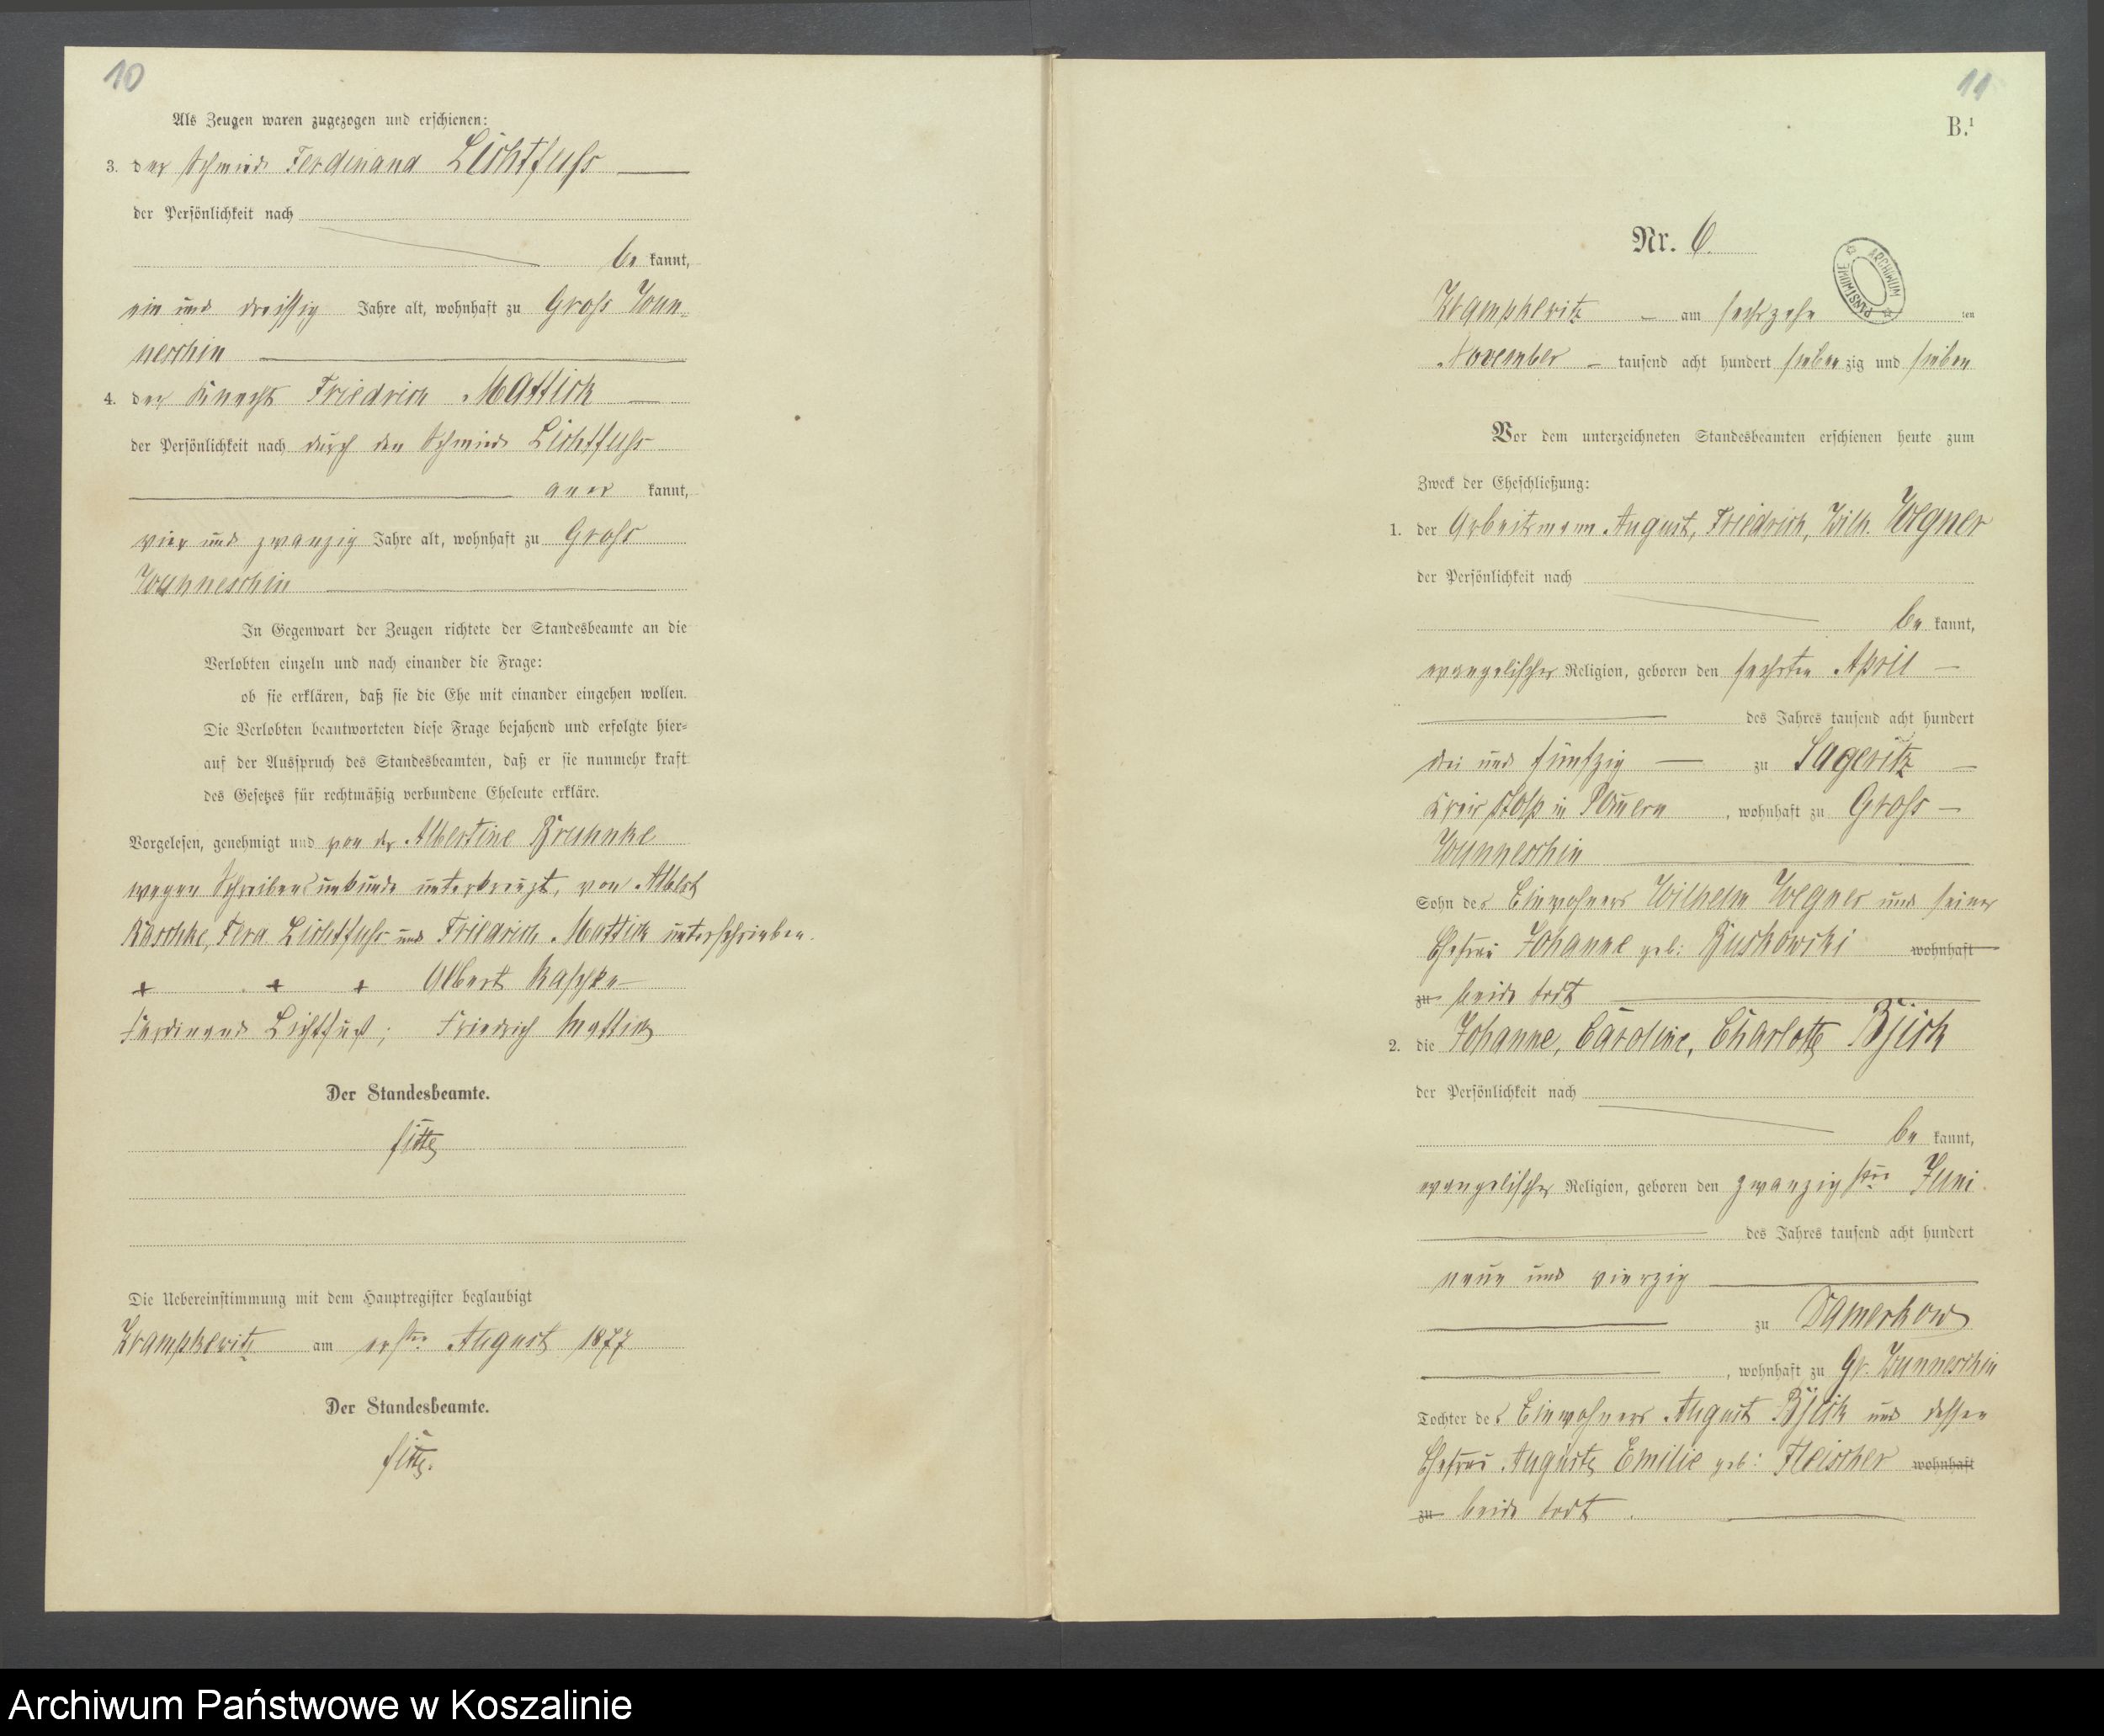 10
Als Zeugen waren zugezogen und erschienen:
3. der Schmied Ferdinand Lichtfuss
der Persönlichkeit nach
be kannt,
ein und dreissig Jahre alt, wohnhaft zu Gross Wun-
neschin
4. der Knecht Friedrich Mattick
der Persönlichkeit nach durch den Schmied Lichtfuss
aner kannt,
vier und zwanzig Jahre alt, wohnhaft zu Gross
Wunneschin
In Gegenwart der Zeugen richtete der Standesbeamte an die
Verlobten einzeln und nach einander die Frage:
ob sie erklären, daß sie die Ehe mit einander eingehen wollen.
Die Verlobten beantworteten diese Frage bejahend und erfolgte hier-
auf der Ausspruch des Standesbeamten, daß er sie nunmehr kraft
des Gesetzes für rechtmäßig verbundene Eheleute erkläre.
Vorgelesen, genehmigt und von der Albertine
wegen Schreibens unkunde unterkreuzt, von Albert
Raschke, Ferd. Lichtfuss und Friedrich Mattick unterschrieben.
+ + + Albert Raschke
Ferdinand Lichtfuß; Friedrich Mattick
Der Standesbeamte.
Die Uebereinstimmung mit dem Hauptregister beglaubigt
Krampkewitz am ersten August 1877
Der Standesbeamte.
11
B.¹
Nr. 6.
ARCHIWUM PAŃSTWOWE
Krampkewitz am sechszehn ten
November tausend acht hundert sieben zig und sieben
Vor dem unterzeichneten Standesbeamten erschienen heute zum
Zweck der Eheschließung:
1. der Arbeitsmann August, Friedrich, Wilh. Wegner
der Persönlichkeit nach
be kannt,
evangelischer Religion, geboren den sechsten April
des Jahres tausend acht hundert
drei und fünfzig zu Sageritz
Kreis Stolp in Pomern, wohnhaft zu Gross
Wunneschin
Sohn des Einwohners Wilhelm Wegner und seiner
Ehefrau Johanne geb: Ruskowski wohnhaft
zu beide todt
2. die Johanne, Caroline, Charlotte Bjick
der Persönlichkeit nach
be kannt,
evangelischer Religion, geboren den zwanzigsten Juni
des Jahres tausend acht hundert
neun und vierzig
zu Damerkow
, wohnhaft zu Gr. Wunneschin
Tochter des Einwohners August Bjick und dessen
Ehefrau Auguste Emilie geb: Fleischer wohnhaft
zu beide todt.
Archiwum Państwowe w Koszalinie